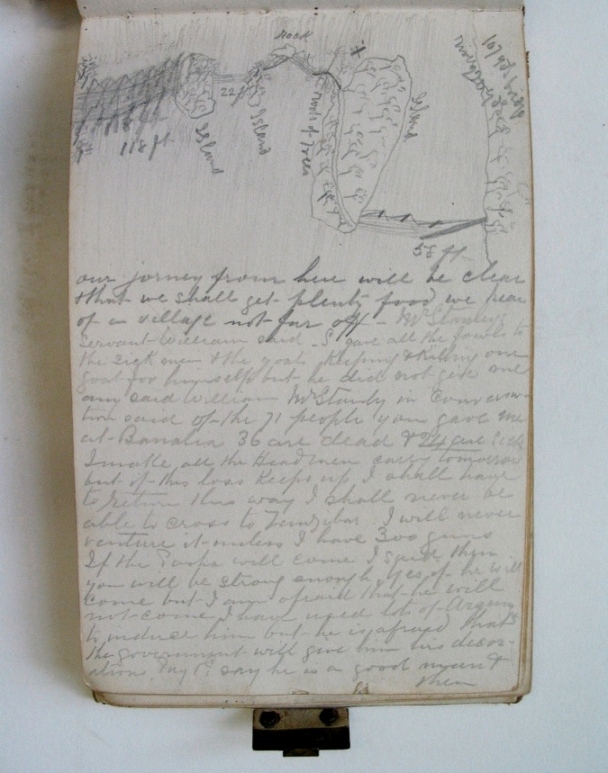 Rock
22 ft
Island
Island
118 ft
roots of trees
Island
58 ft
our jorney from here will be clear
& that we shall get plenty food we hear
of a village not far off - Mr Stanleys
servant William said - S gave all the fowls to
the sick men & the goat keeping & killing one
goat for himself but he did not give me
any said William Mr Stanley in conversa-
tion said of the 71 people you gave me
at Banalia 36 are dead & 24 are sick
I make all the Headmen carry tomorrow
but if this loss keeps up I shall have
to return this way I shall never be
able to cross to Zanzybar I will never
venture it unless I have 300 guns
If the Pasha will come I said then
you will be strong enough yes if he will
come but I am afraid that he will
not come I have used lots of
to induce him but he is afraid that
the government will give him his
say he is a good man &
them